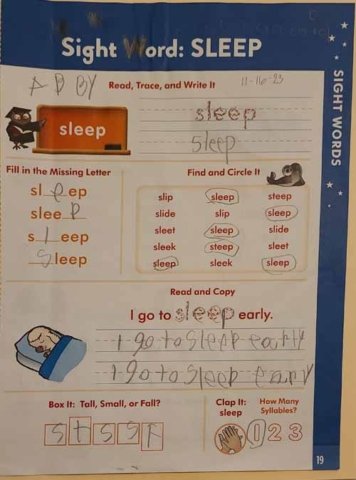 Sight Word: SLEEP
SIGHT WORDS
A B BY Read, Trace, and Write It 11-16-23
sleep
sleep
sleep
Fill in the Missing Letter
sl e ep
slee p
s l eep
s leep
Find and Circle It
slip sleep steep
slide slip sleep
sleet sleep slide
sleek steep sleet
sleep sleek sleep
Read and Copy
I go to sleep early.
I go to sleep early
I go to sleep early
Box It: Tall, Small, or Fall?
s t s s f
Clap It:
sleep
How Many
Syllables?
1 2 3
19